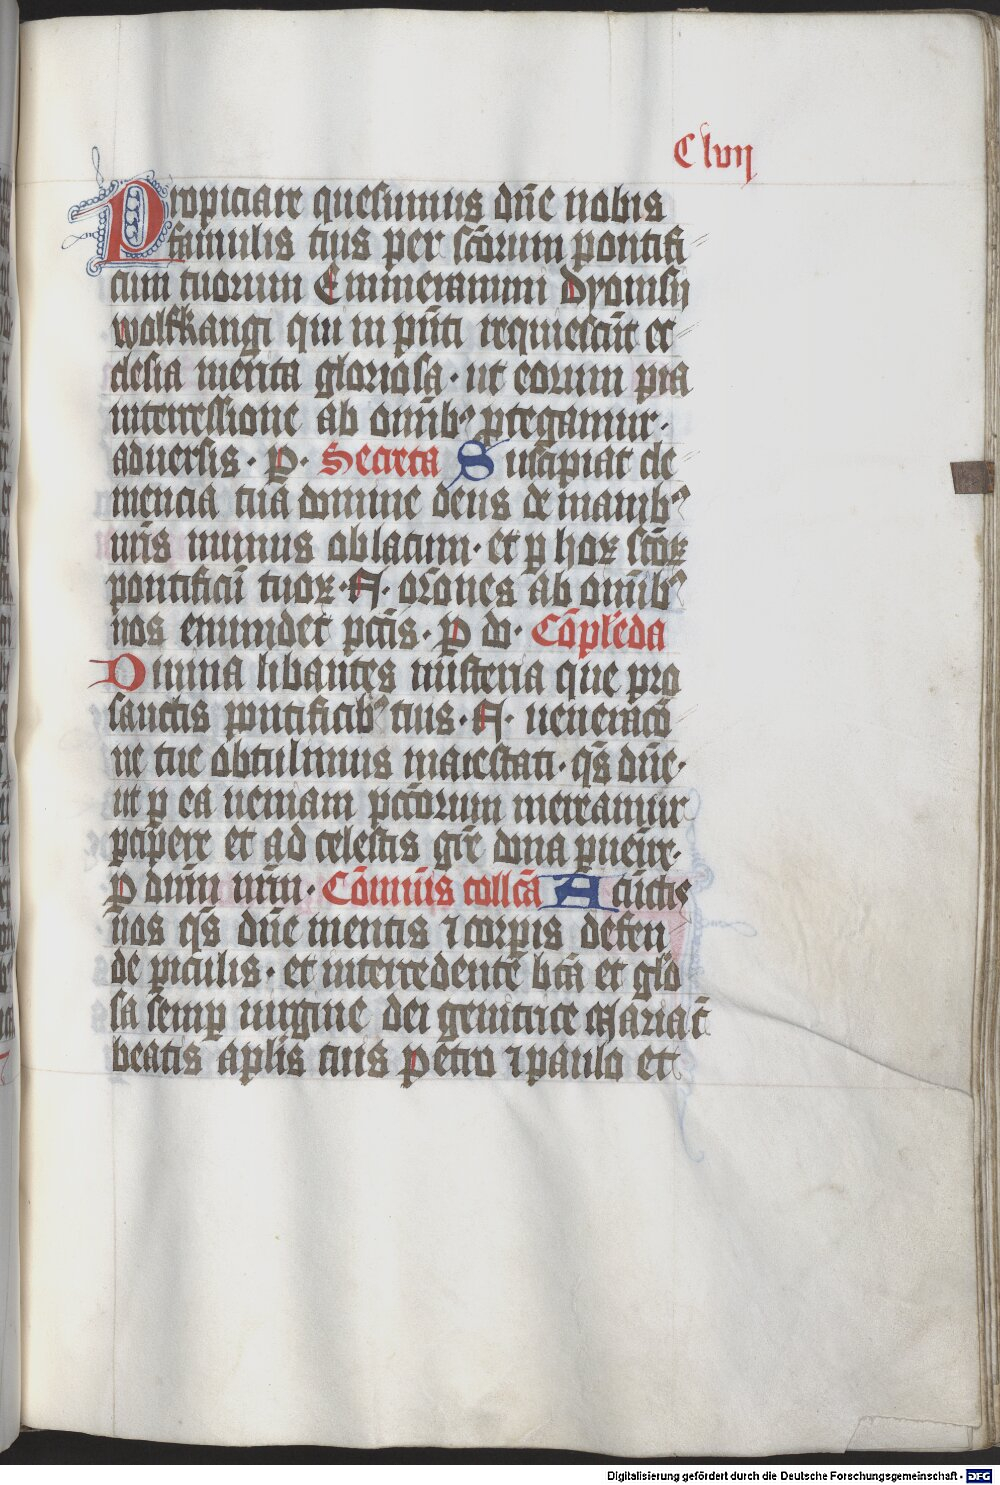 Clvij
Propiciare quesumus dn̄e nobis
famulis tuis per sc̄orum pontifi
cum tuorum Emmerammi Dyonisij
wolfkangi qui in pn̄ti requiescūt ec
clesia merita gloriosa · ut eorum pia
intercessione ab omībꝰ ꝓtegamur ·
aduersis · P · Secreta Suscipiat cle
mencia tua domine deus de manibꝰ
nr̄is munus oblatum · et p hoꝝ sc̄oꝝ
pontificū tuoꝝ · A · orōnes ab omībꝰ
nos emundet pctīs · p do · Cōplēda
Diuina libantes misteria que pro
sanctis pontificibꝰ tuis · A · ueneracō
ne tue obtulimus maiestati · qs̄ dn̄e ·
ut p ea ueniam pctōrum mereamur
pcipere et ad celestis gr̄e dona pueīre ·
P dn̄m nr̄m · Cōmūis collcā A cūctis
nos qs̄ dn̄e mentis ⁊ corpis defen
de piculis · et intercedente btā et glō
sa semp uirgine dei genitrice Maria c̄
beatis aplīs tuis Petro ⁊ paulo et
Digitalisierung gefördert durch die Deutsche Forschungsgemeinschaft - DFG